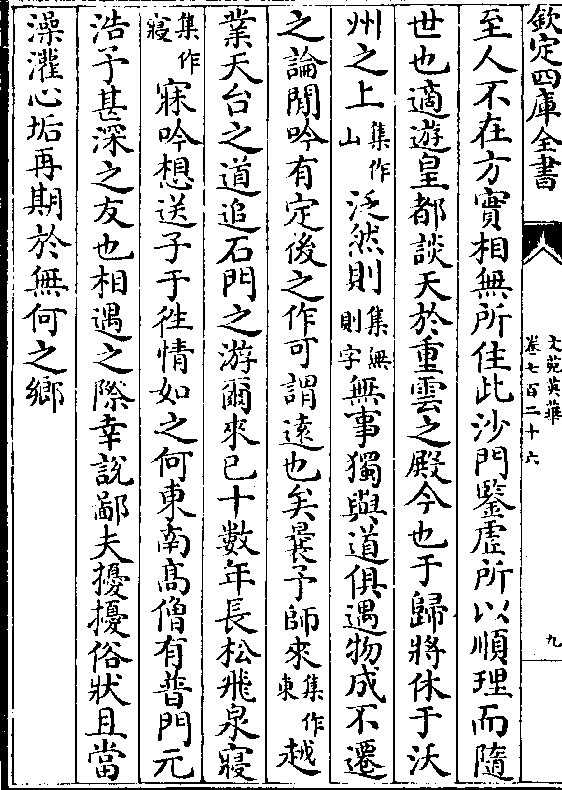 欽定四庫全書
文苑英華
卷七百二十六
九
至人不在方實相無所住此沙門鑒虛所以順理而隨
世也適遊皇都談天於重雲之殿今也于歸將休于沃
州之上集作山泛然則集無則字無事獨與道俱遇物成不遷
之論閒吟有定後之作可謂遠也矣曩予師來集作東越
業天台之道追石門之游爾來已十數年長松飛泉寢
集作寢寐吟想送子于徃情如之何東南高僧有普門元
浩予甚深之友也相遇之際幸說鄙夫擾擾俗狀且當
澡灌心垢再期於無何之鄉